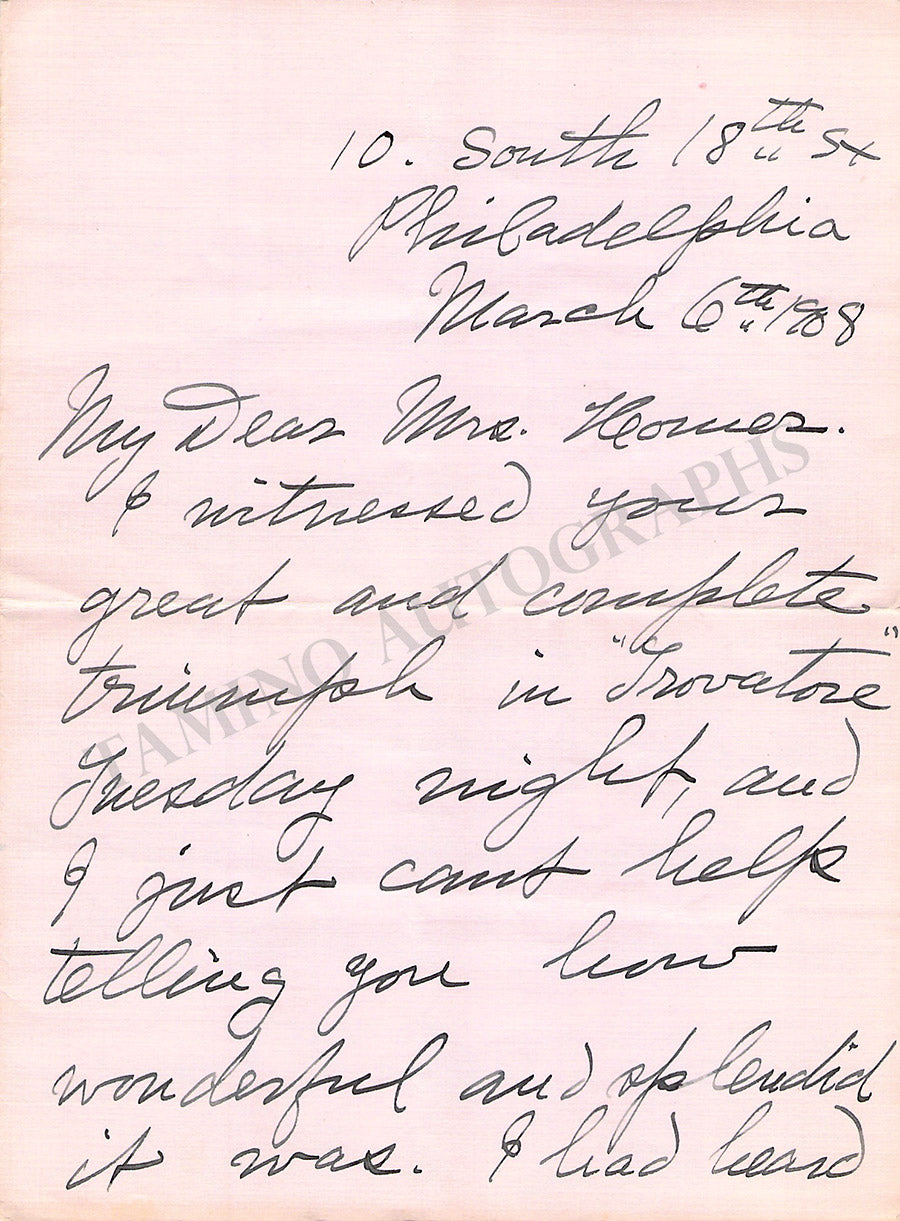 10. South 18th St
Philadelphia
March 6th 1908
My Dear Mrs. Homer.
I witnessed your
great and complete
triumph in "Trovatore"
Tuesday night, and
I just cant help
telling you how
wonderful and splendid
it was. I had heard
TAMINO AUTOGRAPHS